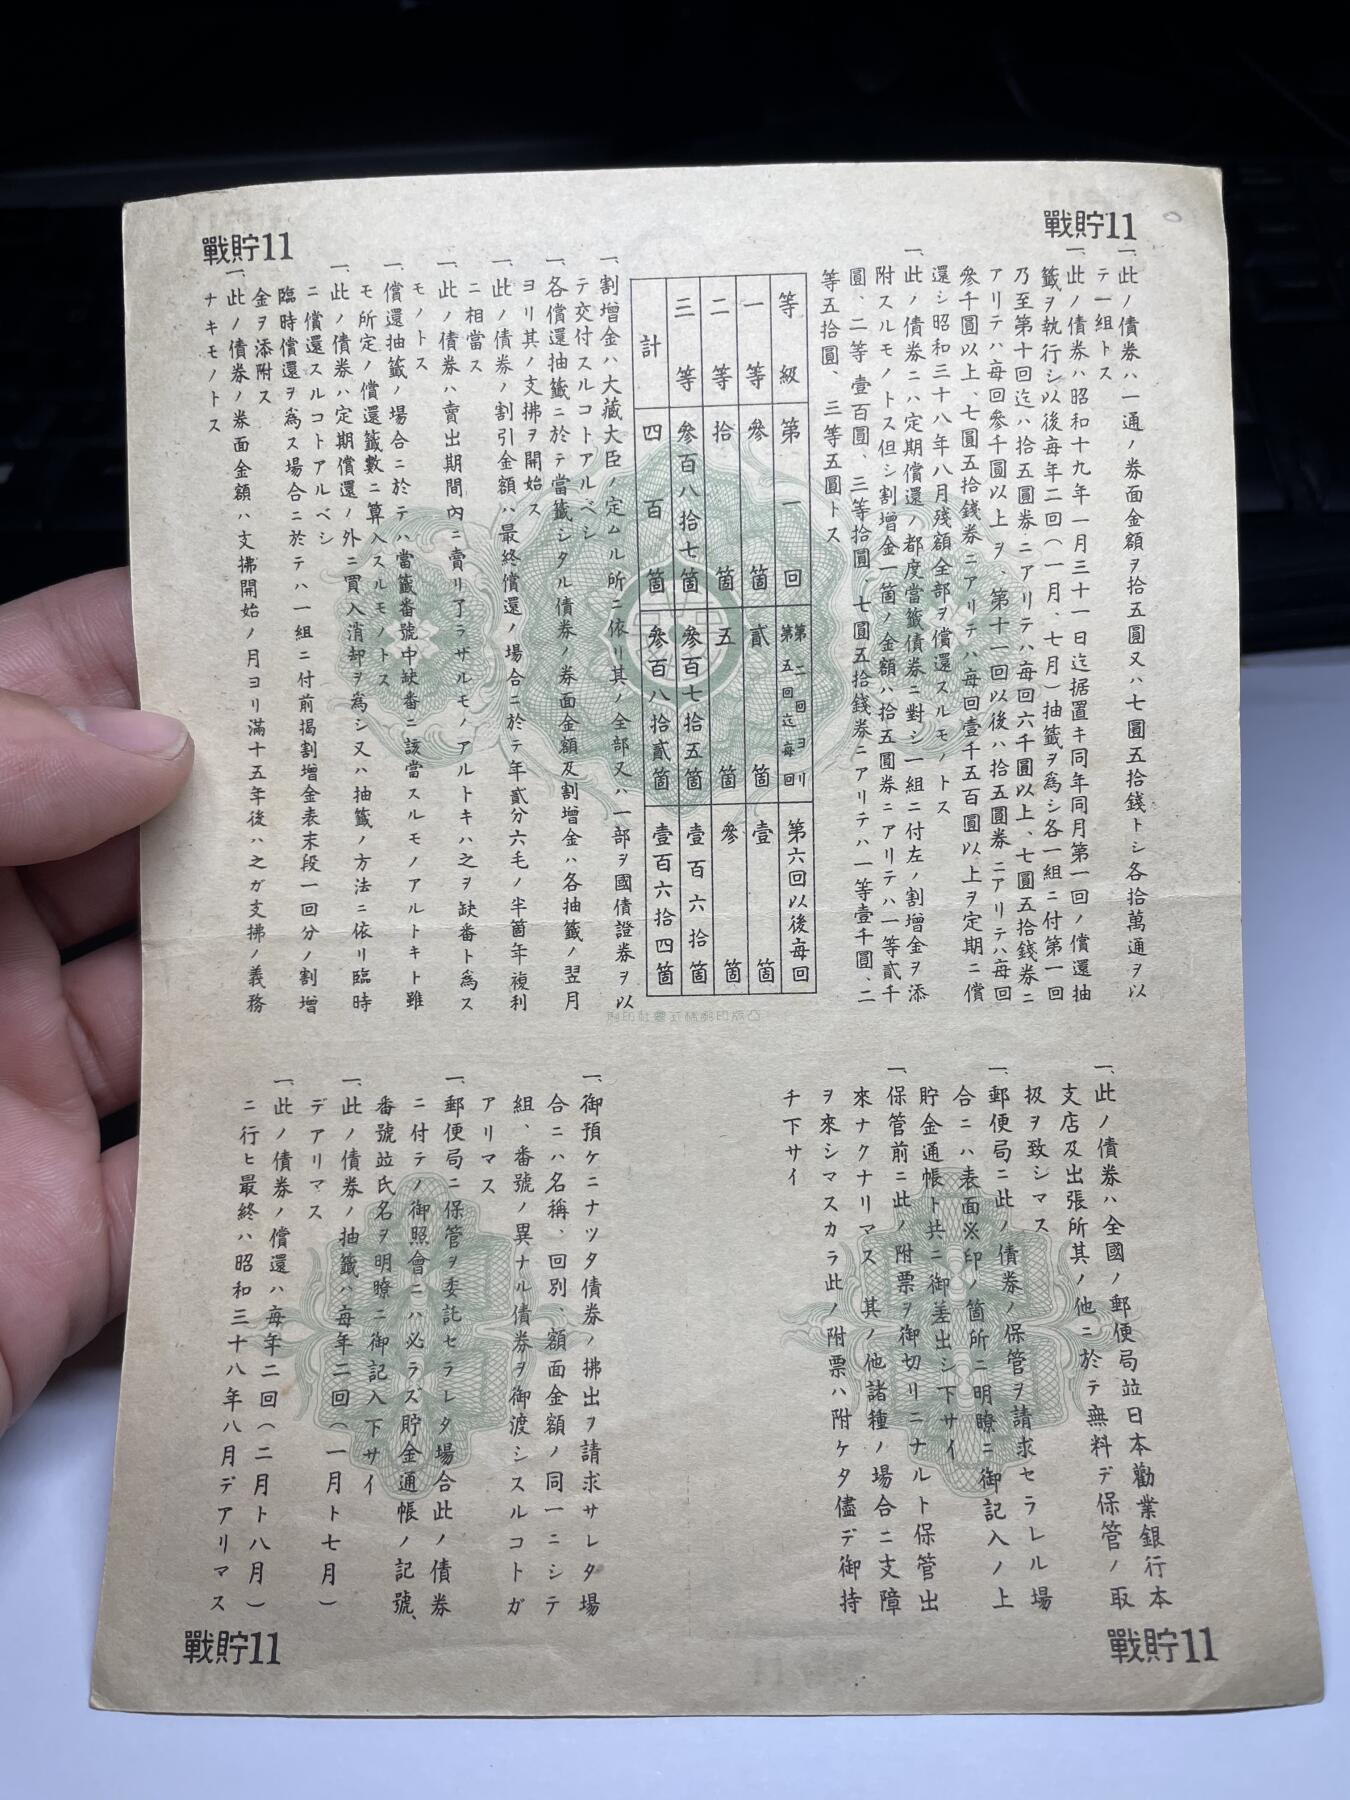 戰貯11
戰貯11
一、此ノ債券ハ一通ノ券面金額ヲ拾五圓又ハ七圓五拾錢トシ各拾萬通ヲ以
テ一組トス
一、此ノ債券ハ昭和十九年一月三十一日迄据置キ同年同月第一回ノ償還抽
籤ヲ執行シ以後每年二回(一月、七月)抽籤ヲ爲シ各一組ニ付第一回
乃至第十回迄ハ拾五圓券ニアリテハ每回六千圓以上、七圓五拾錢券ニ
アリテハ每回參千圓以上ヲ、第十一回以後ハ拾五圓券ニアリテハ每回
參千圓以上、七圓五拾錢券ニアリテハ每回壹千五百圓以上ヲ定期ニ償
還シ昭和三十八年八月殘額全部ヲ償還スルモノトス
一、此ノ債券ニハ定期償還ノ都度當籤債券ニ對シ一組ニ付左ノ割增金ヲ添
附スルモノトス但シ割增金一箇ノ金額ハ拾五圓券ニアリテハ一等貳千
圓、二等壹百圓、三等拾圓、七圓五拾錢券ニアリテハ一等壹千圓、二
等五拾圓、三等五圓トス
等級 第一回 第二回ヨリ第五回迄每回 第六回以後每回
一等 參箇 貳箇 壹箇
二等 拾箇 五箇 參箇
三等 參百八拾七箇 參百七拾五箇 壹百六拾箇
計 四百箇 參百八拾貳箇 壹百六拾四箇
一、割增金ハ大藏大臣ノ定ムル所ニ依リ其ノ全部又ハ一部ヲ國債證券ヲ以
テ交付スルコトアルベシ
一、各償還抽籤ニ於テ當籤シタル債券ノ券面金額及割增金ハ各抽籤ノ翌月
ヨリ其ノ支拂ヲ開始ス
一、此ノ債券ノ割引金額ハ最終償還ノ場合ニ於テ年貳分六毛ノ半箇年複利
ニ相當ス
一、此ノ債券ハ賣出期間內ニ賣リ了ラザルモノアルトキハ之ヲ缺番ト爲ス
モノトス
一、償還抽籤ノ場合ニ於テハ當籤番號中缺番ニ該當スルモノアルトキト雖
モ所定ノ償還籤數ニ算入スルモノトス
一、此ノ債券ハ定期償還ノ外ニ買入消却ヲ爲シ又ハ抽籤ノ方法ニ依リ臨時
ニ償還スルコトアルベシ
臨時償還ヲ爲ス場合ニ於テハ一組ニ付前揭割增金表末段一回分ノ割增
金ヲ添附ス
一、此ノ債券ノ券面金額ハ支拂開始ノ月ヨリ滿十五年後ハ之ガ支拂ノ義務
ナキモノトス
凸版印刷株式會社印刷
一、此ノ債券ハ全國ノ郵便局竝日本勸業銀行本
支店及出張所其ノ他ニ於テ無料デ保管ノ取
扱ヲ致シマス
一、郵便局ニ此ノ債券ノ保管ヲ請求セラレル場
合ニハ表面※印ノ箇所ニ明瞭ニ御記入ノ上
貯金通帳ト共ニ御差出シ下サイ
一、保管前ニ此ノ附票ヲ御切リニナルト保管出
來ナクナリマス 其ノ他諸種ノ場合ニ支障
ヲ來シマスカラ此ノ附票ハ附ケタ儘デ御持
チ下サイ
一、御預ケニナツタ債券ノ拂出ヲ請求サレタ場
合ニハ名稱、回別、額面金額ノ同一ニシテ
組、番號ノ異ナル債券ヲ御渡シスルコトガ
アリマス
一、郵便局ニ保管ヲ委託セラレタ場合此ノ債券
ニ付テノ御照會ニハ必ラズ貯金通帳ノ記號、
番號竝氏名ヲ明瞭ニ御記入下サイ
一、此ノ債券ノ抽籤ハ每年二回(一月ト七月)
デアリマス
一、此ノ債券ノ償還ハ每年二回(二月ト八月)
ニ行ヒ最終ハ昭和三十八年八月デアリマス
戰貯11
戰貯11